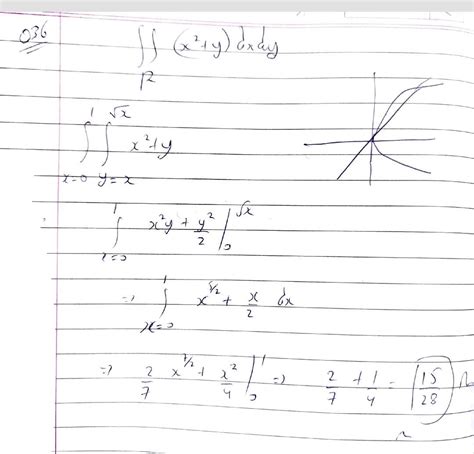 036
∬_R (x²+y) dxdy
∫_{x=0}^{1} ∫_{y=x}^{√x} x²+y
∫_{x=0}^{1} x²y + y²/2 |_0^{√x}
⇒ ∫_{x=0}^{1} x^{5/2} + x/2 dx
⇒ 2/7 x^{7/2} + x²/4 |_0^1 ⇒ 2/7 + 1/4 = 15/28